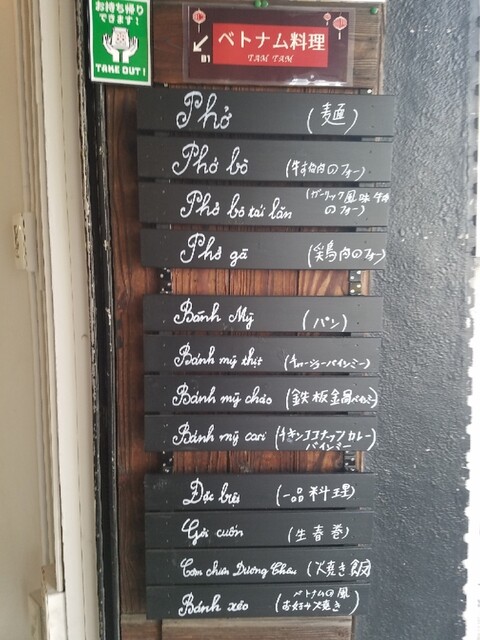 お持ち帰り
できます!
TAKE OUT!
ベトナム料理
TAM TAM
B1
Phở (麺)
Phở bò (牛すね肉のフォー)
Phở bò tái lăn (ガーリック風味牛肉
のフォー)
Phở gà (鶏肉のフォー)
Bánh Mỳ (パン)
Bánh mỳ thịt (チャーシューバインミー)
Bánh mỳ chảo (鉄板鍋
Bánh mỳ cari (チキンココナッツカレー
バインミー)
Đặc biệt (一品料理)
Gỏi cuốn (生春巻)
Cơm chiên Dương Châu (焼き飯)
Bánh xèo (ベトナムの風
お好み焼き)